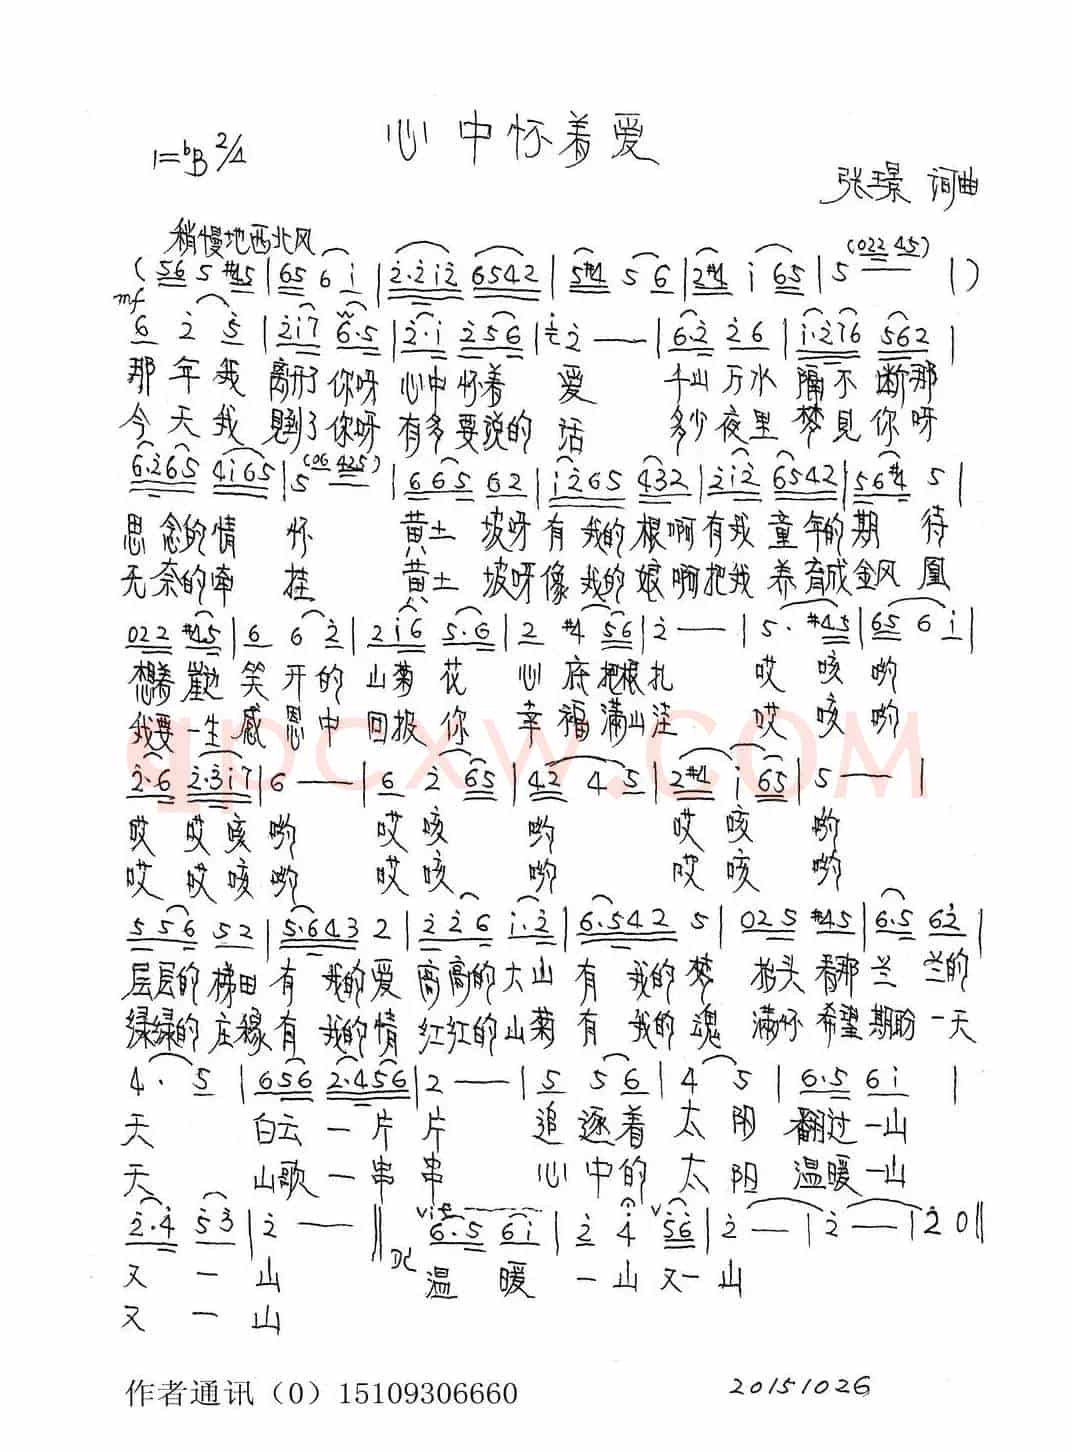 心中怀着爱
1=ᵇB 2/4
张璟 词曲
稍慢地西北风
(022 45)
( 56 5 #45 | 65 6 i | 2·2i2 6542 | 5#4 5 6 | 2#4 i 65 | 5 | )
mf
6 2 5 | 2i7 6·5 | 2·i 256 | 2 — | 6·2 26 | i·276 562 |
那年我 离开了你呀 心中怀着 爱 千山万水 隔不断那
今天我 見到了你呀 有多要说的 话 多少夜里 梦見你呀
6·265 4i65 | 5 (06 425) | 665 62 | i265 432 | 2i2 6542 | 56#4 5 |
思念的情 怀 黄土坡呀有我的根啊有我童年的期待
无奈的牵 挂 黄土坡呀像我的娘啊把我养育成金凤凰
022 #45 | 6 6 2 | 2i6 5·6 | 2 #4 56 | 2 — | 5· #45 | 65 6 i |
想着歡笑开的山菊花 心底把根扎 哎咳哟
我要一生感恩中回报你 幸福满山洼 哎咳哟
qpcxw.com
2·6 2·3i7 | 6 — | 6 2 65 | 42 4 5 | 2#4 i 65 | 5 — |
哎 哎咳哟 哎咳 哟 哎咳 哟
哎 哎咳哟 哎咳 哟 哎咳 哟
556 52 | 5·643 2 | 226 i·2 | 6·542 5 | 025 #45 | 6·5 62 |
层层的梯田有我的爱 高高的大山有我的梦 抬头看那兰兰的
绿绿的庄稼有我的情 红红的山菊有我的魂 满怀希望期盼一天
4· 5 | 656 2·456 | 2 — | 5 5 6 | 4 5 | 6·5 6i |
天 白云一片片 追逐着太阳 翻过一山
天 山歌一串串 心中的太阳 温暖一山
2·4 53 | 2 — ‖ 6·5 6i | 2 4 56 | 2 — | 2 — | 2 0 ‖
DC
又一山 温暖一山又一山
又一山
作者通讯（0）15109306660
20151026